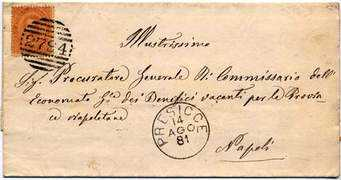 2784
Illustrissimo
Sig. Procuratore Generale R. Commissario dell'
Economato G.le dei Benefici vacanti per le Provin
ce Napoletane
PRESICCE
14
AGO
81
Napoli